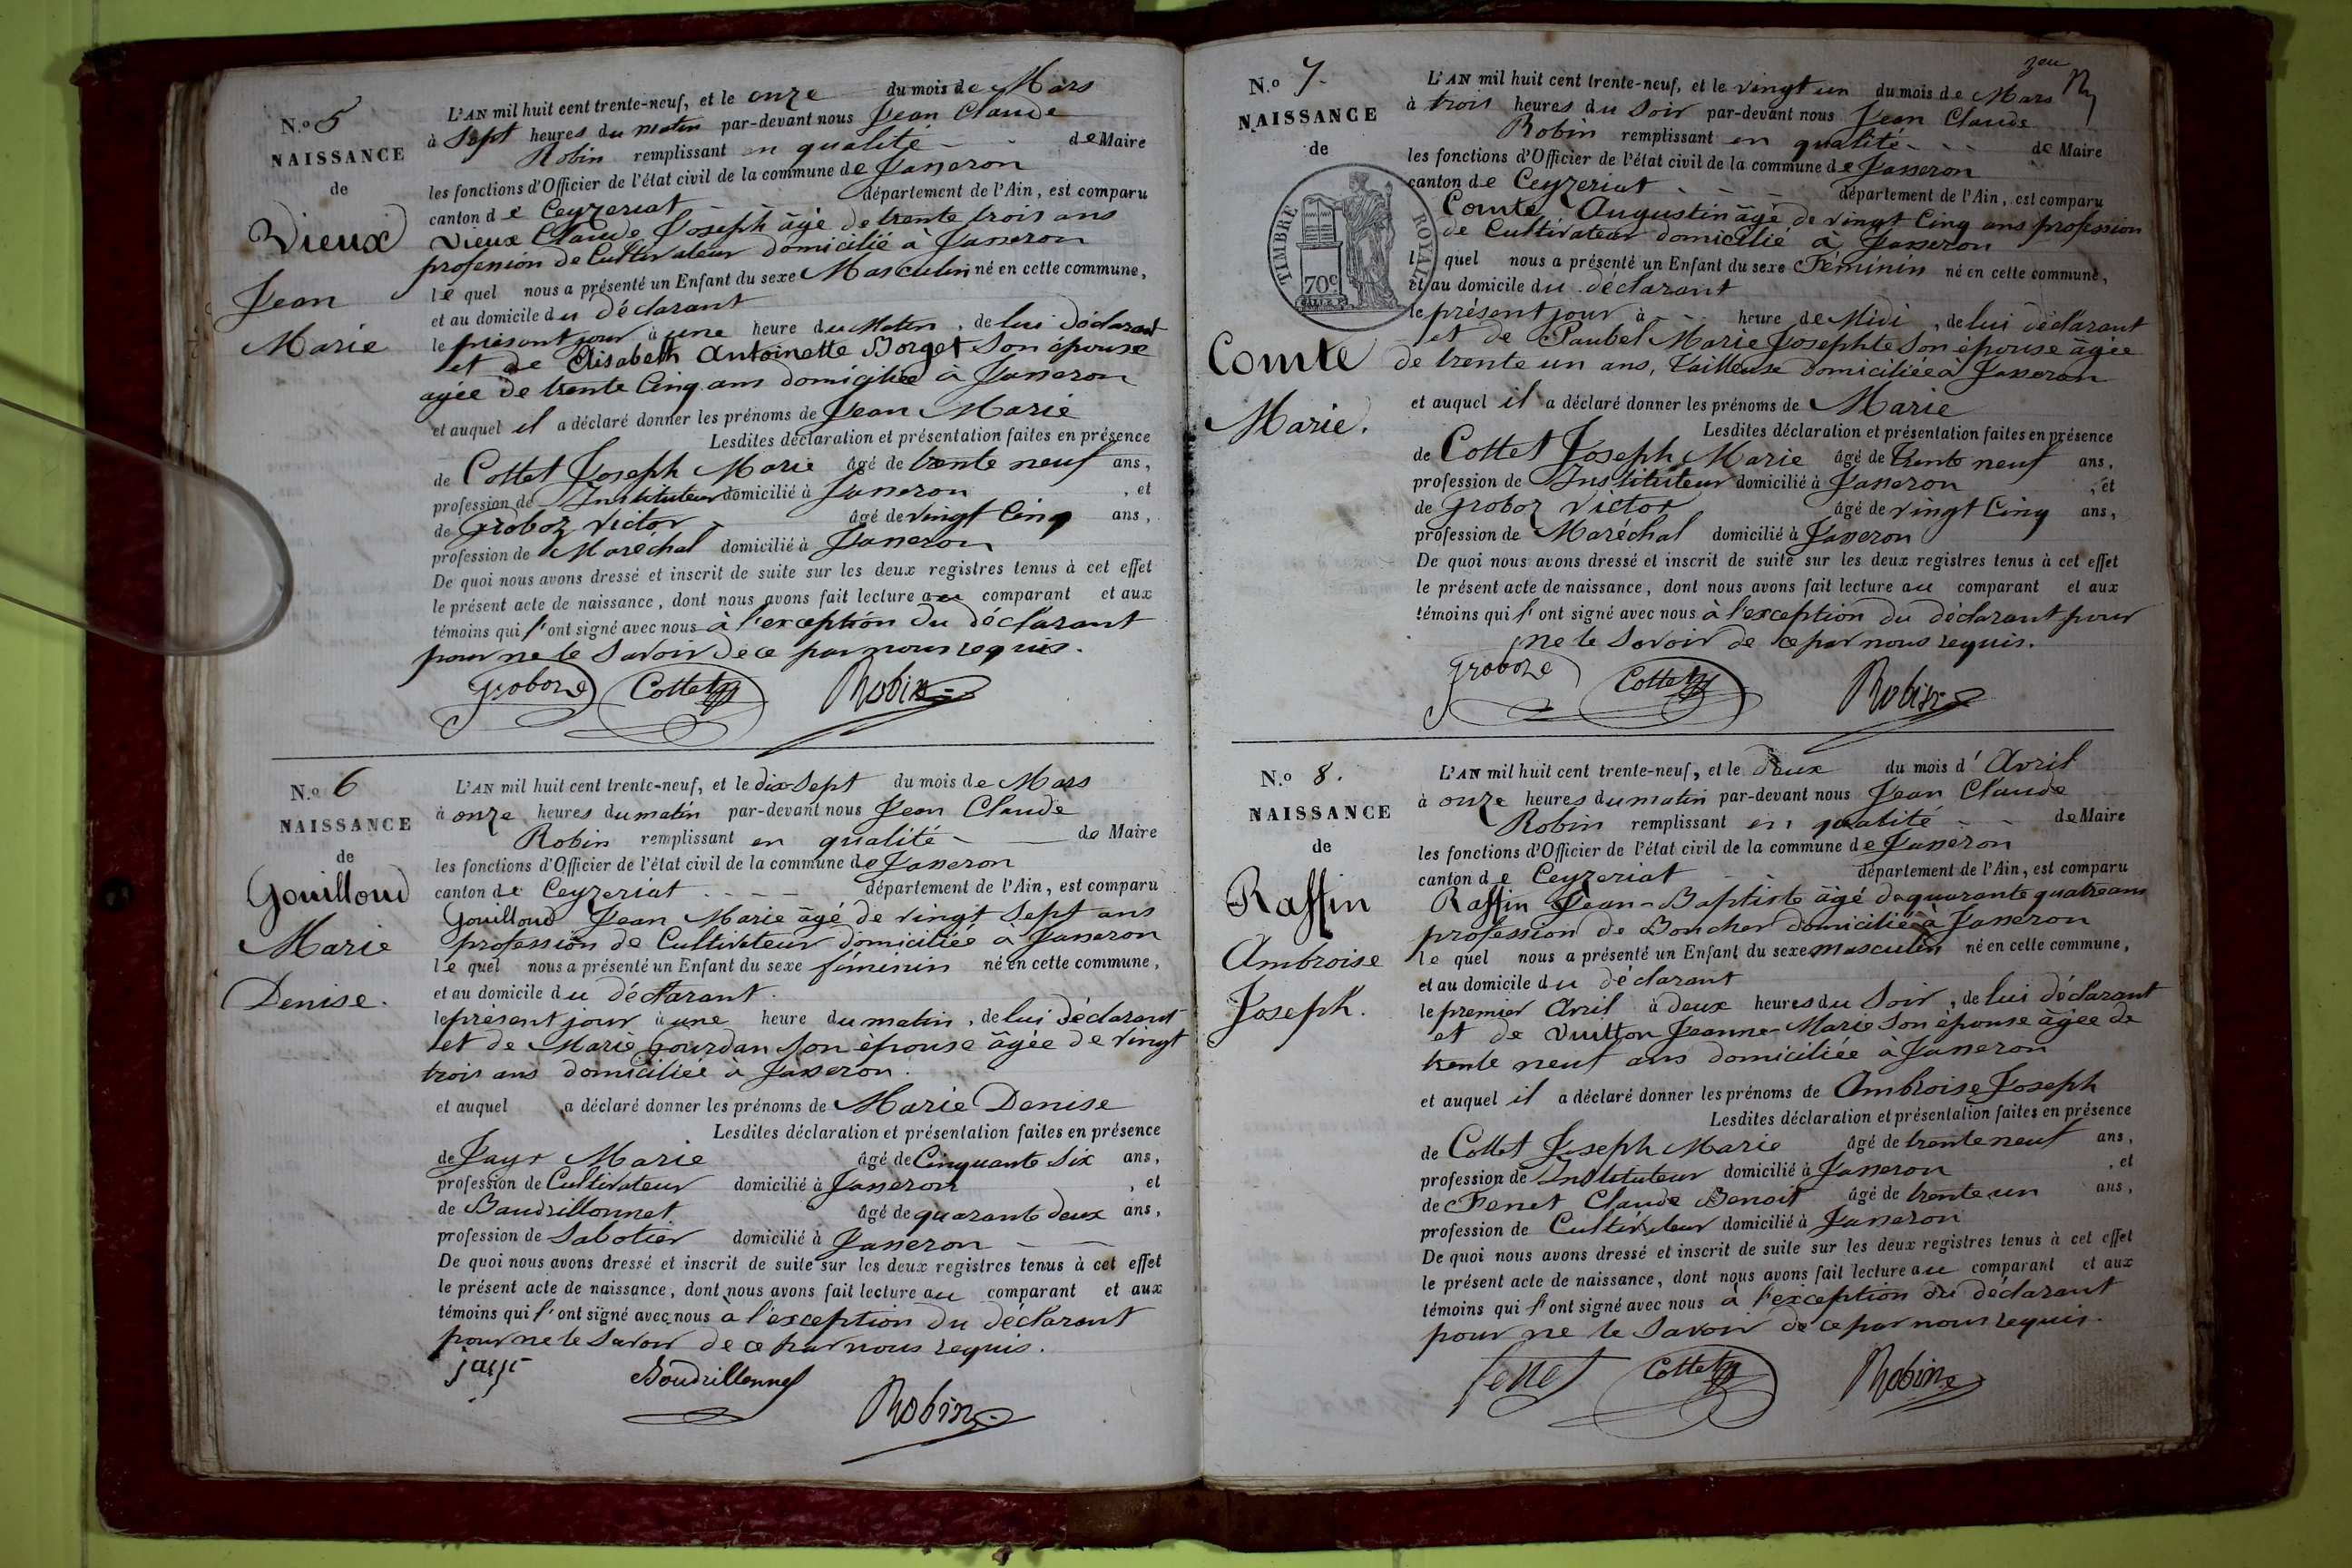 N.o 5
NAISSANCE
de
Vieux
Jean
Marie
L'AN mil huit cent trente-neuf, et le onze du mois de Mars
à Sept heures du matin par-devant nous Jean Claude
Robin remplissant en qualité de Maire
les fonctions d'Officier de l'état civil de la commune de Jasseron
canton de Ceyzeriat département de l'Ain, est comparu
Vieux Claude Joseph âgé de trente trois ans
profession de Cultivateur domicilié à Jasseron
le quel nous a présenté un Enfant du sexe Masculin né en cette commune,
et au domicile du déclarant
le présent jour à une heure du Matin, de lui déclarant
et de Elisabeth Antoinette Borget son épouse
agée de trente Cinq ans domiciliée à Jasseron
et auquel il a déclaré donner les prénoms de Jean Marie
Lesdites déclaration et présentation faites en présence
de Cottet Joseph Marie âgé de trente neuf ans,
profession de Instituteur domicilié à Jasseron, et
de Groboz Victor âgé de vingt Cinq ans,
profession de Maréchal domicilié à Jasseron
De quoi nous avons dressé et inscrit de suite sur les deux registres tenus à cet effet
le présent acte de naissance, dont nous avons fait lecture au comparant et aux
témoins qui l'ont signé avec nous à l'exception du déclarant
pour ne le savoir de ce par nous requis.
Groboz Cottet Robin
N.o 6
NAISSANCE
de
Gouilloud
Marie
Denise.
L'AN mil huit cent trente-neuf, et le dix Sept du mois de Mars
à onze heures du matin par-devant nous Jean Claude
Robin remplissant en qualité de Maire
les fonctions d'Officier de l'état civil de la commune de Jasseron
canton de Ceyzeriat département de l'Ain, est comparu
Gouilloud Jean Marie âgé de vingt Sept ans
profession de Cultivateur domiciliée à Jasseron
le quel nous a présenté un Enfant du sexe féminin né en cette commune,
et au domicile du déclarant.
le présent jour à une heure du matin, de lui déclarant
et de Marie Gourdan son épouse âgée de vingt
trois ans domiciliée à Jasseron.
et auquel a déclaré donner les prénoms de Marie Denise
Lesdites déclaration et présentation faites en présence
de Jayr Marie âgé de Cinquante Six ans,
profession de Cultivateur domicilié à Jasseron, et
de Baudrillonnet âgé de quarante deux ans,
profession de Sabotier domicilié à Jasseron
De quoi nous avons dressé et inscrit de suite sur les deux registres tenus à cet effet
le présent acte de naissance, dont nous avons fait lecture au comparant et aux
témoins qui l'ont signé avec nous à l'exception du déclarant
pour ne le savoir de ce par nous requis.
jayr Boudrillonnet
Robin
N.o 7.
NAISSANCE
de
TIMBRE ROYAL
70c
Comte
Marie.
L'AN mil huit cent trente-neuf, et le vingt un du mois de Mars
à trois heures du Soir par-devant nous Jean Claude
Robin remplissant en qualité de Maire
les fonctions d'Officier de l'état civil de la commune de Jasseron
canton de Ceyzeriat département de l'Ain, est comparu
Comte Augustin âgé de vingt Cinq ans profession
de Cultivateur domicilié à Jasseron
l quel nous a présenté un Enfant du sexe Féminin né en cette commune,
et au domicile du déclarant
le présent jour à heure de Midi, de lui déclarant
et de Paubel Marie Josephte son épouse âgée
de trente un ans, tailleuse domiciliée à Jasseron
et auquel il a déclaré donner les prénoms de Marie
Lesdites déclaration et présentation faites en présence
de Cottet Joseph Marie âgé de trente neuf ans,
profession de Instituteur domicilié à Jasseron, et
de Groboz Victor âgé de vingt Cinq ans,
profession de Maréchal domicilié à Jasseron
De quoi nous avons dressé et inscrit de suite sur les deux registres tenus à cet effet
le présent acte de naissance, dont nous avons fait lecture au comparant et aux
témoins qui l'ont signé avec nous à l'exception du déclarant pour
ne le savoir de ce par nous requis.
Groboz Cottet Robin
N.o 8.
NAISSANCE
de
Raffin
Ambroise
Joseph.
L'AN mil huit cent trente-neuf, et le deux du mois d'Avril
à onze heures du matin par-devant nous Jean Claude
Robin remplissant en qualité de Maire
les fonctions d'Officier de l'état civil de la commune de Jasseron
canton de Ceyzeriat département de l'Ain, est comparu
Raffin Jean-Baptiste âgé de quarante quatre ans
profession de Boucher domiciliée à Jasseron
le quel nous a présenté un Enfant du sexe masculin né en cette commune,
et au domicile du déclarant
le premier Avril à deux heures du Soir, de lui déclarant
et de Vuitton Jeanne-Marie son épouse âgée de
trente neuf ans domiciliée à Jasseron
et auquel il a déclaré donner les prénoms de Ambroise Joseph
Lesdites déclaration et présentation faites en présence
de Cottet Joseph Marie âgé de trente neuf ans,
profession de Instituteur domicilié à Jasseron, et
de Fenet Claude Benoit âgé de trente un ans,
profession de Cultivateur domicilié à Jasseron
De quoi nous avons dressé et inscrit de suite sur les deux registres tenus à cet effet
le présent acte de naissance, dont nous avons fait lecture au comparant et aux
témoins qui l'ont signé avec nous à l'exception du déclarant
pour ne le savoir de ce par nous requis.
fenet Cottet Robin